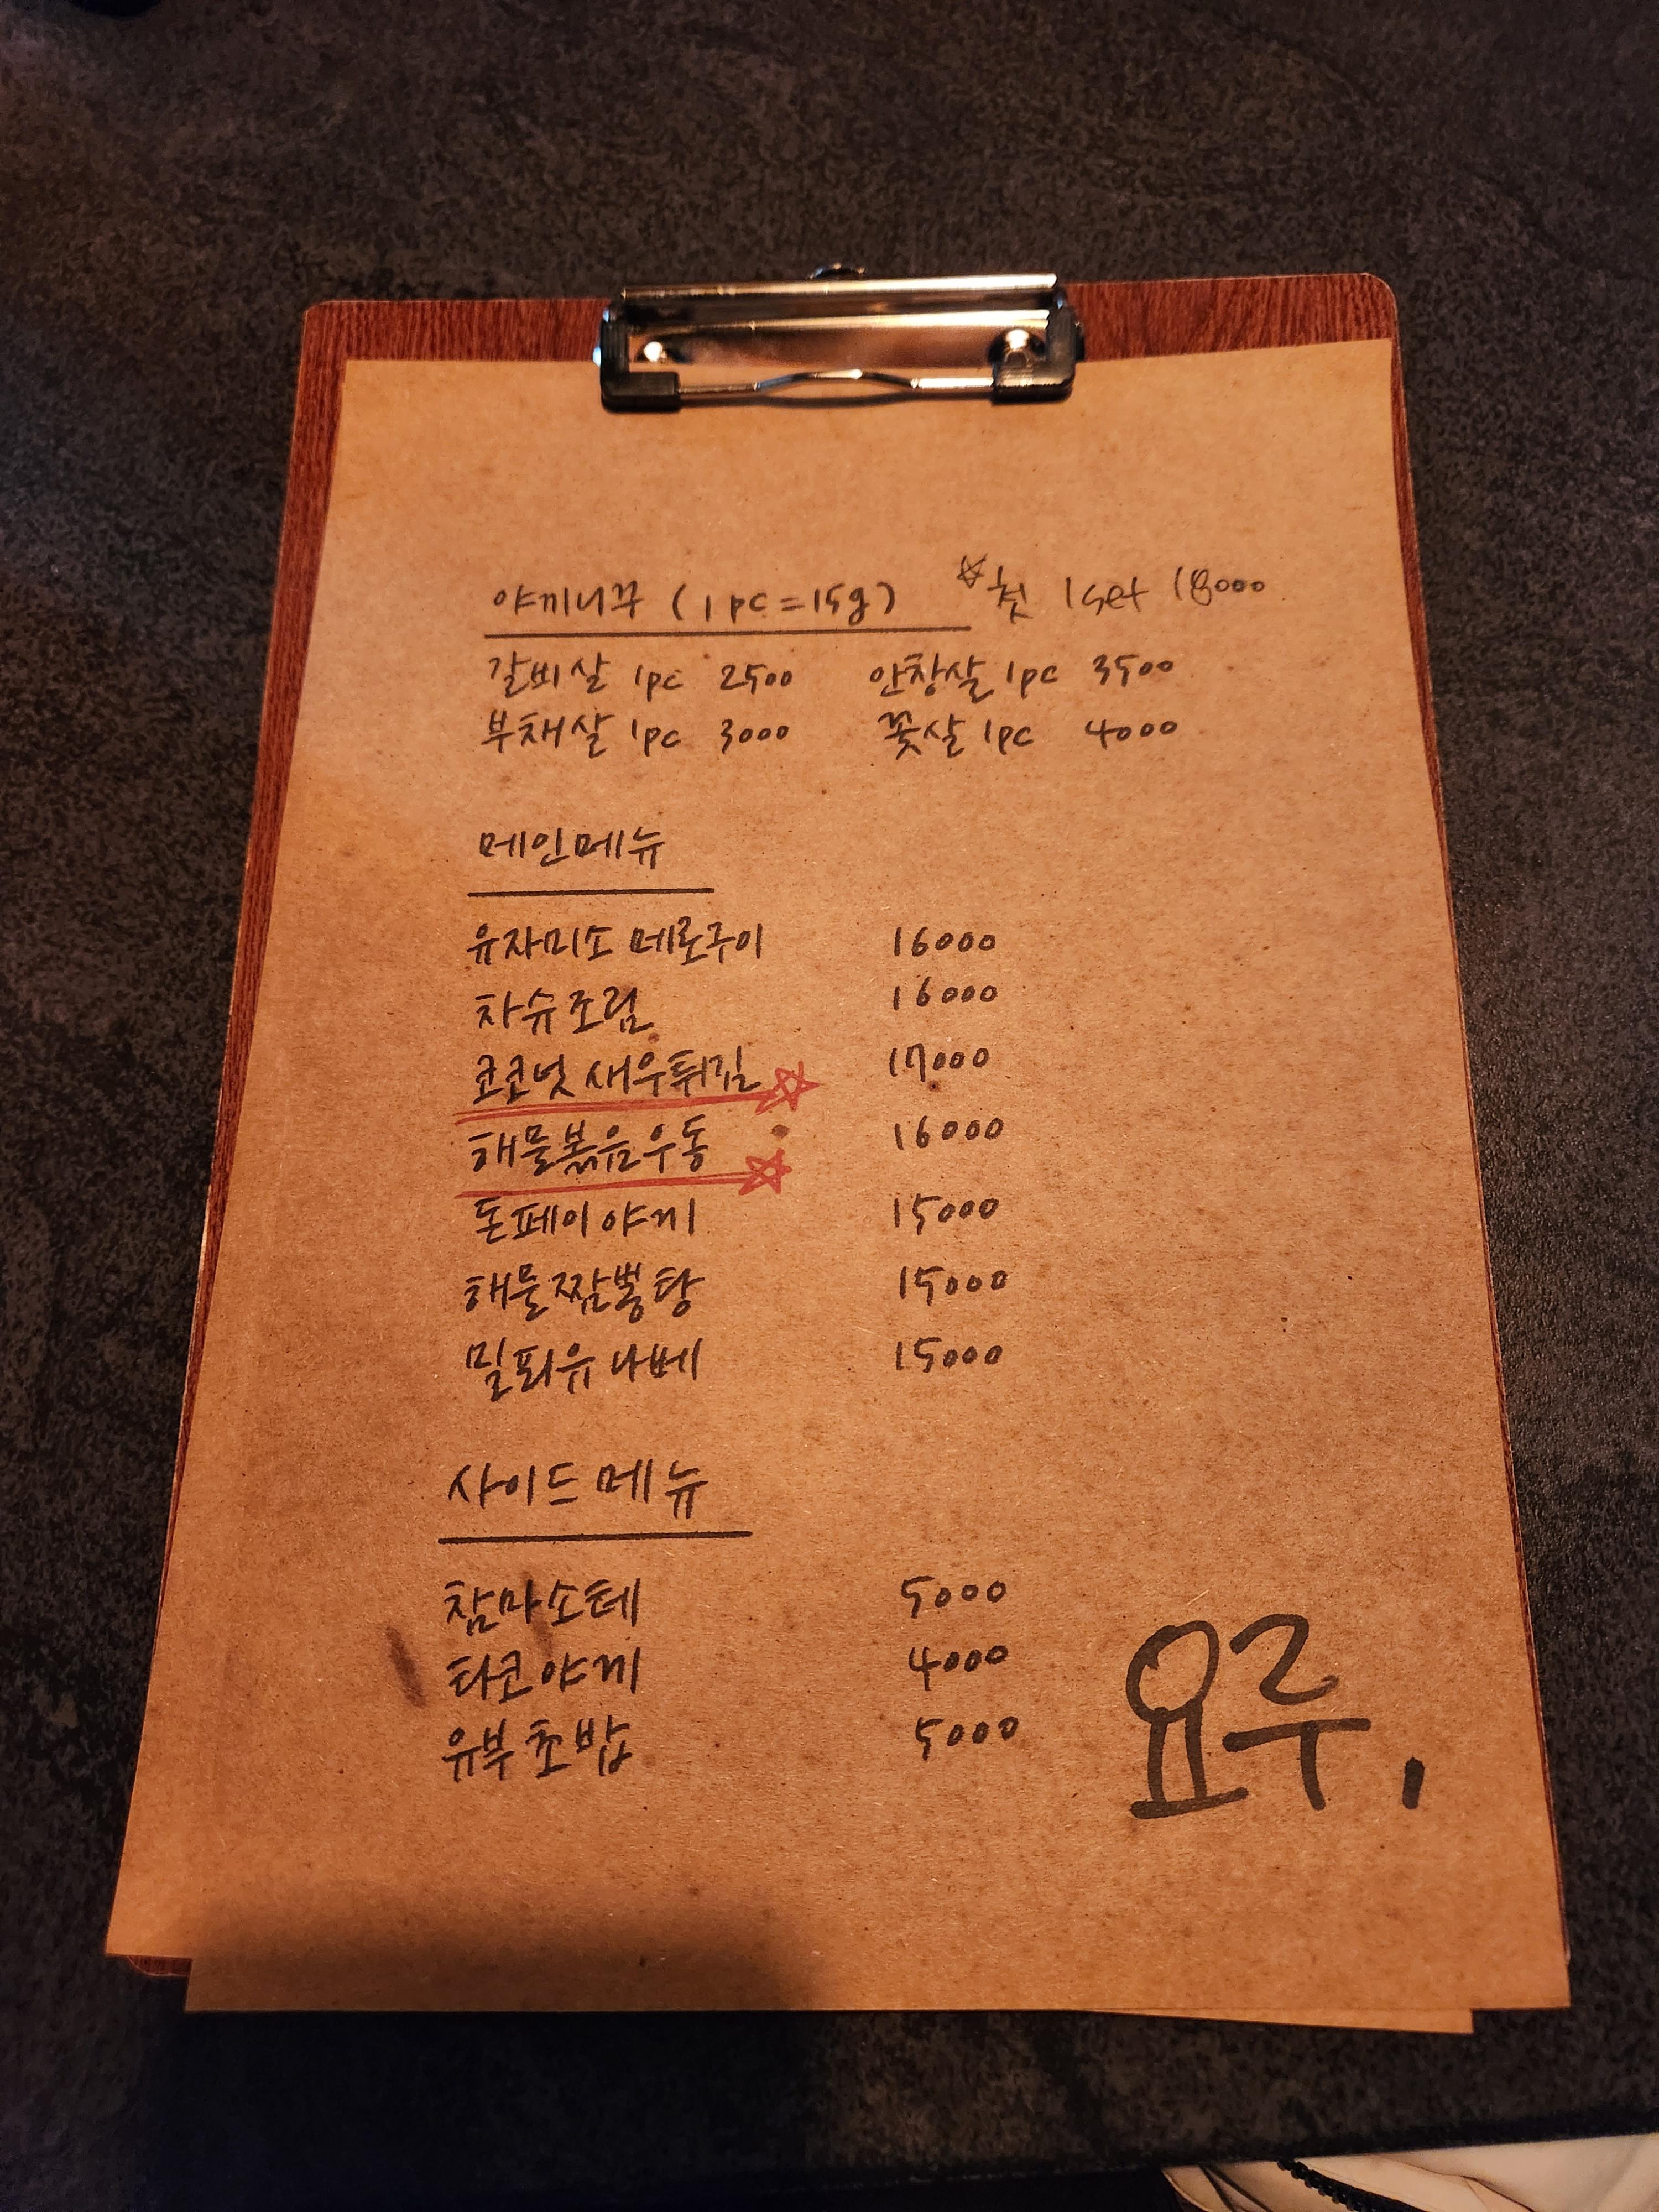 야끼니꾸 (1pc=15g) ☆첫 1set 18000
갈비살 1pc 2500 안창살 1pc 3500
부채살 1pc 3000 꽃살 1pc 4000
메인메뉴
유자미소 메로구이 16000
차슈조림 16000
코코넛 새우튀김☆ 17000
해물볶음우동☆ 16000
돈페이야끼 15000
해물짬뽕탕 15000
밀푀유나베 15000
사이드메뉴
참마소테 5000
타코야끼 4000
유부초밥 5000
요루,